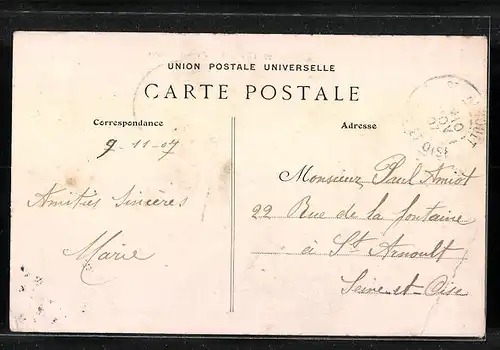 UNION POSTALE UNIVERSELLE
CARTE POSTALE
Correspondance
Adresse
9-11-07
Amitiés Sincères
Marie
Monsieur Paul Amiot
22 Rue de la fontaine
à St Arnoult
Seine-et-Oise